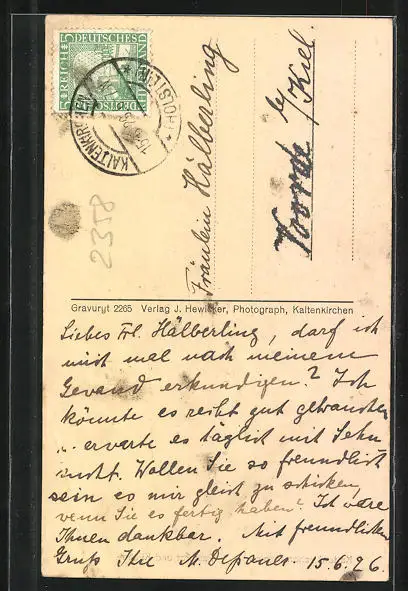 DEUTSCHES REICH
KALTENKIRCHEN (HOLSTEIN)
2358
Fräulein Hälberling
Voorde b/
/Kiel
Gravuryt 2265 Verlag J. Hewicker, Photograph, Kaltenkirchen
Liebes Frl. Hälberling, darf ich
mich mal nach meinem
Gewand erkundigen? Ich
könnte es recht gut gebrauchen
u. erwarte es täglich mit Sehn
sucht. Wollen Sie so freundlich
sein es mir gleich zu schicken,
wenn Sie es fertig haben? Ich wäre
Ihnen dankbar. Mit freundlichem
Gruß Ihre M. 15.6.26.